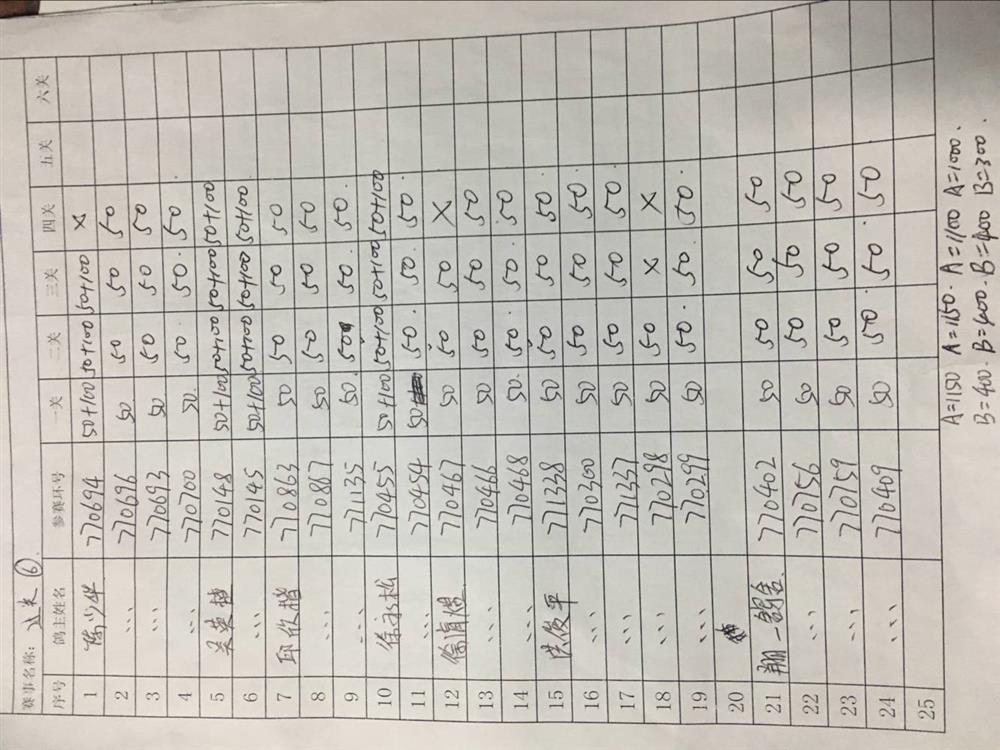 赛事名称: 过关 ⑥
序号 鸽主姓名 参赛环号 一关 二关 三关 四关 五关 六关
1 陈少华 770694 50+100 50+100 50+100 ×
2 ... 770696 50 50 50 50
3 ... 770693 50 50 50 50
4 ... 770700 50. 50. 50. 50.
5 吴英雄 770148 50+100 50+100 50+100 50+100
6 ... 770145 50+100 50+100 50+100 50+100
7 邱欣楷 770863 50 50 50 50
8 ... 770867 50 50 50 50
9 ... 771135 50. 50. 50. 50.
10 徐永松 770455 50+100 50+100 50+100 50+100
11 ... 770454 50 50. 50. 50.
12 770467 50 50 50 ×
13 ... 770466 50 50 50 50
14 ... 770468 50. 50. 50. 50.
15 洪俊平 771338 50 50 50 50
16 ... 770300 50 50 50 50.
17 ... 771337 50 50 50 50.
18 ... 770298 50 50 × ×
19 ... 770299 50 50. 50. 50.
20
21 770402 50 50 50 50
22 ... 770756 50 50 50 50
23 ... 770759 50 50 50 50
24 ... 770409 50 50. 50. 50
25
A=1150 A=1150. A=1100 A=1000.
B=400. B=400. B=400 B=300.